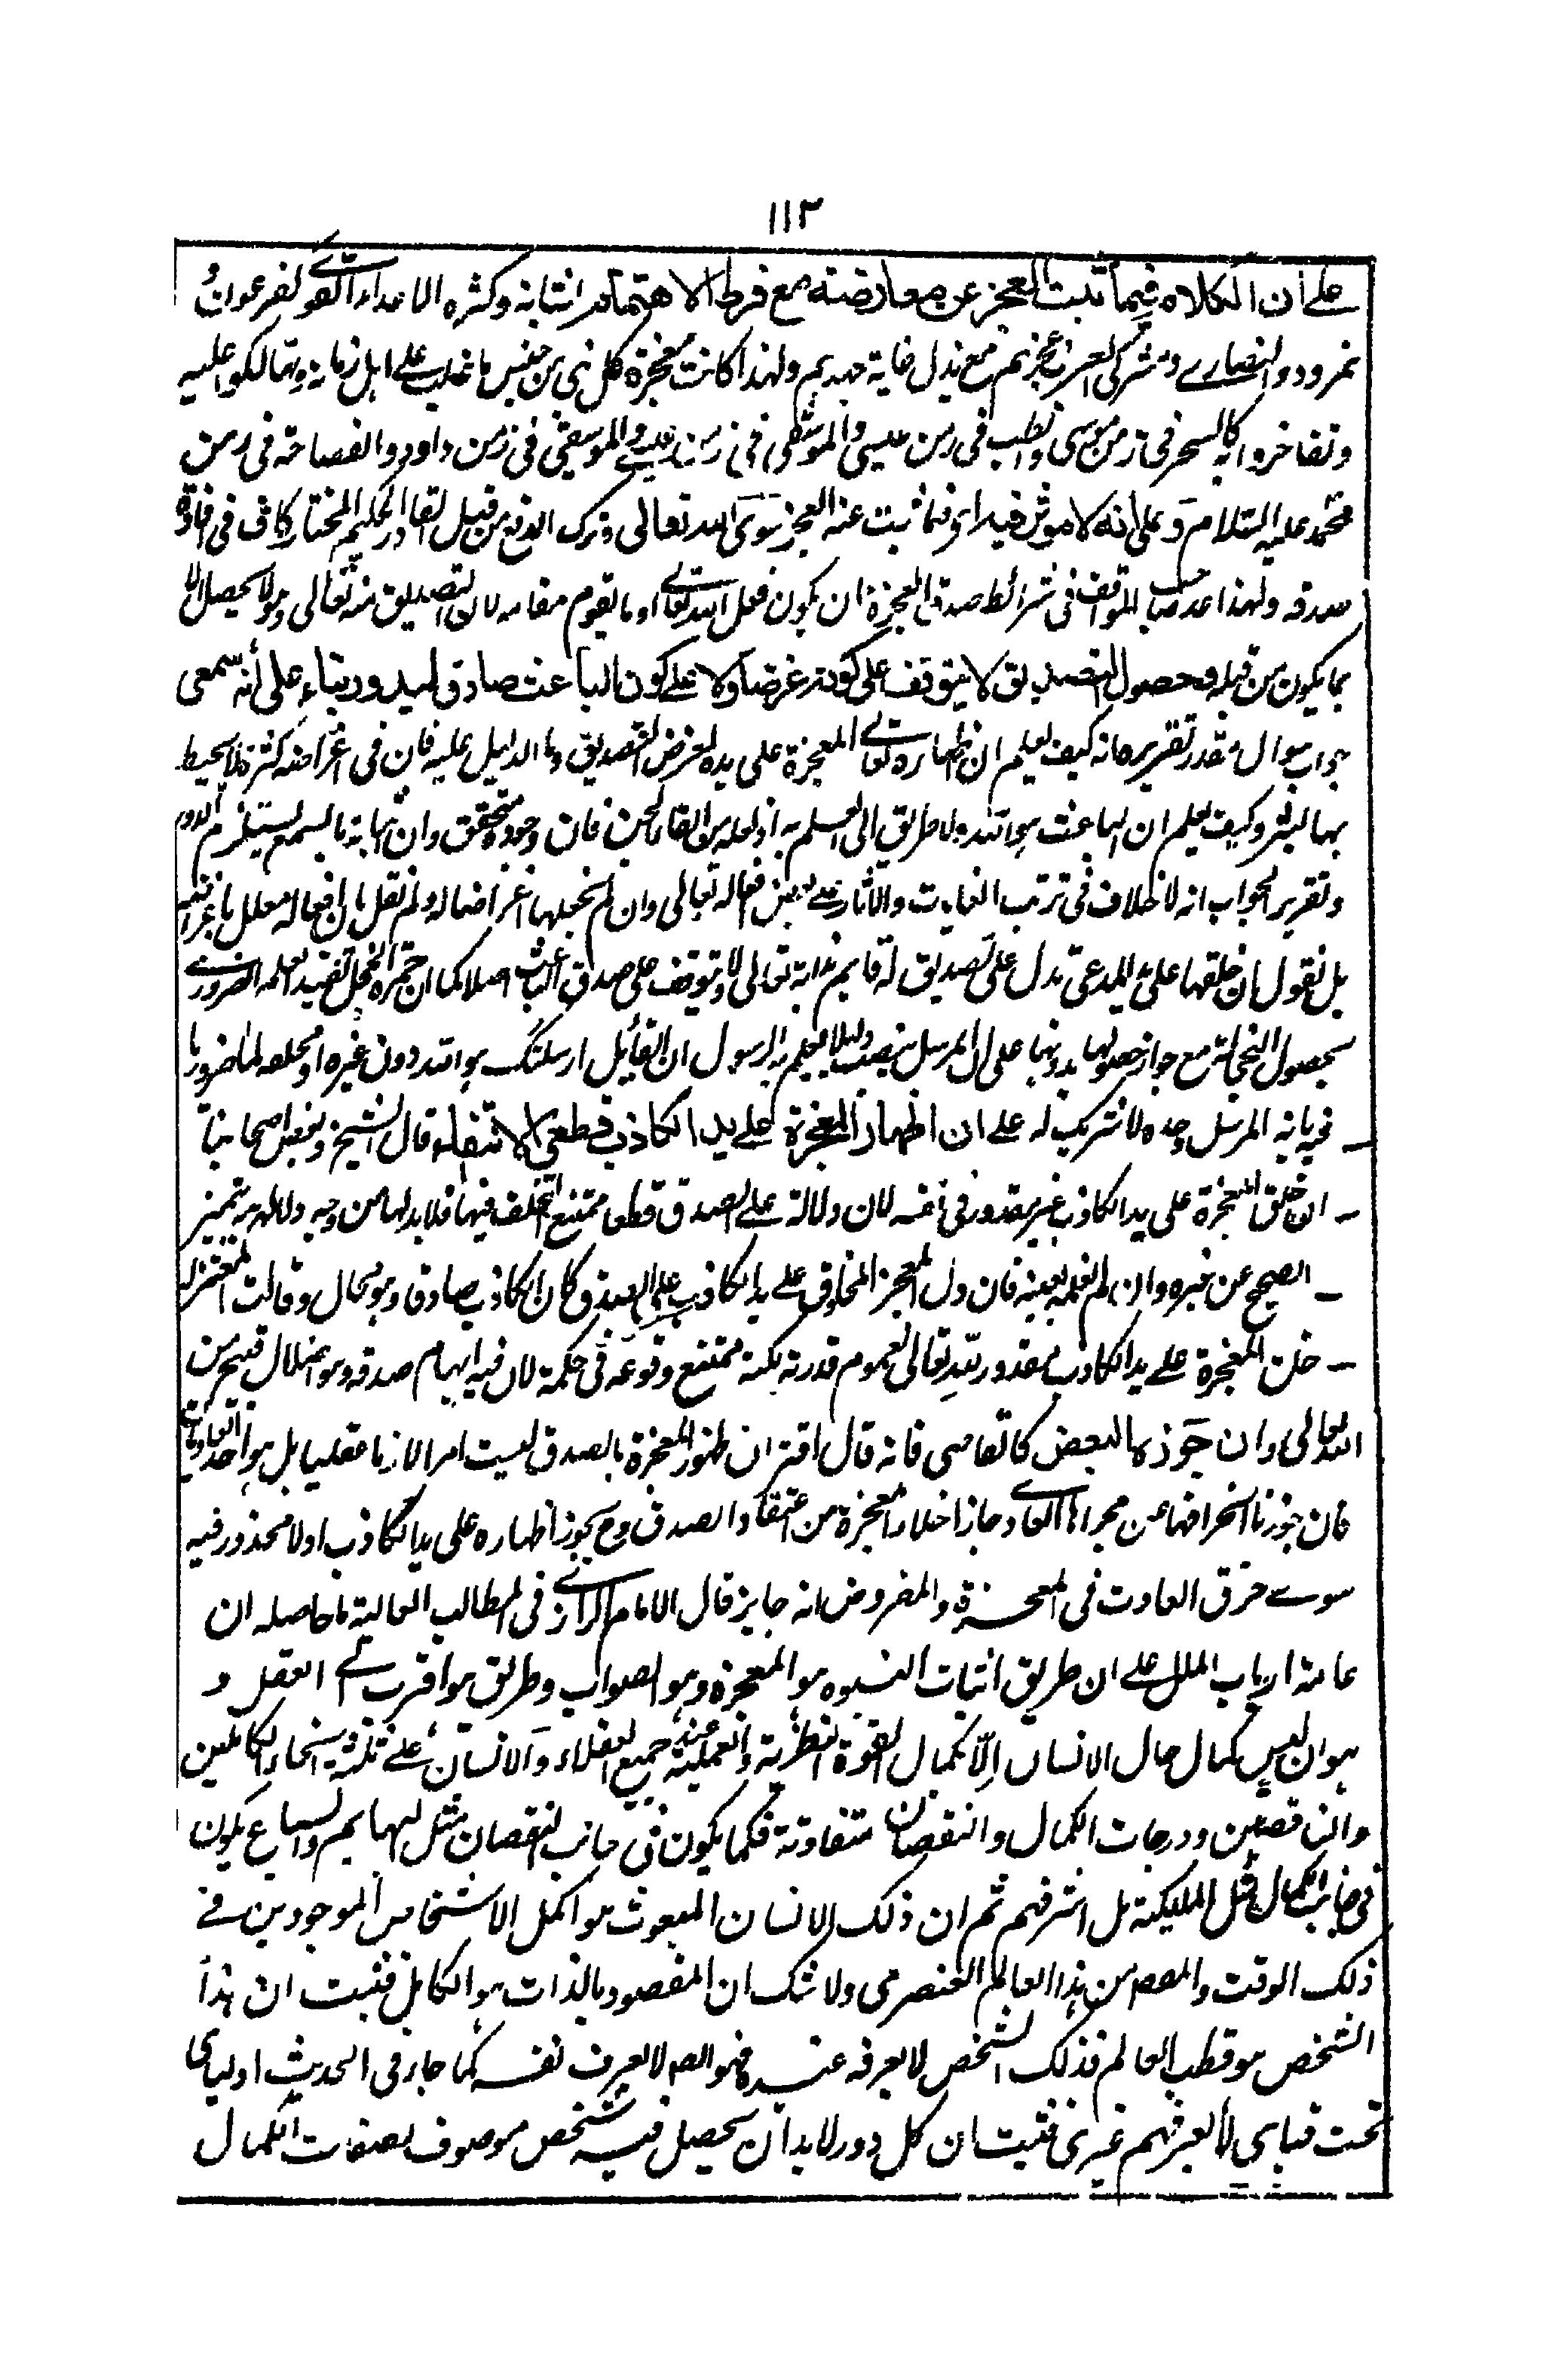 ١١٣
على ان الكلام فيما ثبت العجز عن معارضته مع فرط الاهتمام انتابه وكثره الاعداء القوى لفرعون
نمرود والنصارى ومشركى العرب عجزهم مع بذل غاية جهدهم ولهذا كانت معجزة كل نبى من جنس ما غلب على اهل زمانه وتهالكو عليه
وتفاخروا به كالسحر فى زمن موسى والطب فى زمن عيسى والموسيقى فى زمن داود والفصاحة فى زمن
محمد عليه السلام وعلى انه لا موثر فيه او فيما ثبت عنه العجز سوى الله تعالى وترك الدفع من قبل القادر الحكيم المختار كاف فى افادة
صدقه ولهذا عد صاحب المواقف فى شرائط صدق المعجزة ان يكون فعل الله تعالى او ما يقوم مقامه لان التصديق منه تعالى وهو لا يحصل الا
بما يكون من قبله وحصول التصديق لا يتوقف على كونه غرضا ولا على كون الباعث صادق ليدور بناء على أنه سمعى
جواب سوال مقدر تقريره انه كيف يعلم ان اظهاره تعالى المعجزة على يده لغرض التصديق وما الدليل عليه فان فى اغراضه كثرة لا يحيط
بها البشر وكيف يعلم ان الباعث هو الله ولا طريق الى العلم به اذ لعله من القاء الجن فان وجوده متحقق وان اثباته بالسمع يستلزم الدور
وتقرير الجواب انه لا خلاف فى ترتب الغايات والآثار على بعض افعاله تعالى وان لم نجعلها اغراضا له ولم نقل بان افعاله معلل باغراضه
بل نقول ان خلقها على يد المدعى تدل على تصديق له قايم بذاته تعالى ولا يتوقف على صدق الباعث اصلا كما ان حمرة الخجل تفيد لعلمه الضرورى
بحصول الخجالة مع جواز حصولها بدونها على ان المرسل ينصب دليلا يعلم به الرسول ان القائل ارسلتك هو الله دون غيره او يخلق علما ضروريا
فيه بانه المرسل وحده لا شريك له على ان اظهار المعجزة على يد الكاذب قطعى الانتفاء قال الشيخ وبعض اصحابنا
ان خلق المعجزة على يد الكاذب غير مقدور فى نفسه لان دلالة على الصدق قطعا ممتنع التخلف فيها فلا بد لها من وجه دلالة به يتميز
الصحيح عن غيره وان لم نعلمه بعينه فان دل المعجز المخلوق على يد الكاذب على الصدق كان الكاذب صادقا وهو محال وقالت المعتزلة
خلق المعجزة على يد الكاذب مقدور لله تعالى لعموم قدرته لكنه ممتنع وقوعه فى حكمة لان فيه ايهام صدقه وهو اضلال قبيح من
الله تعالى وان جوزها البعض كالقاضى فانه قال اقتران ظهور المعجزة بالصدق ليست امرا لازما عقليا بل هو احد العاديات
فان جوزنا انخرافها عن مجراها العادى جاز اخلاء المعجزة من اعتقاد الصدق وح يجوز اظهاره على يد الكاذب اولا محذور فيه
سوى خرق العادت فى المعجزة والمفروض انه جايز قال الامام الرازى فى المطالب العالية ما حاصله ان
عامة ارباب الملل على ان طريق اثبات النبوه هو المعجزة وهو الصواب وطريق هو اقرب الى العقل و
هو ان ليس كمال حال الانسان إلّا بكمال القوة النظرية والعملية عند جميع العقلاء والانسان على ثلثة انحاء الكاملين
والناقصين ودرجات الكمال والنقصان متفاوتة فكما يكون فى جانب النقصان مثل البهايم والسباع يكون
فى جانب الكمال مثل المليكة بل اشرفهم ثم ان ذلك الانسان المبعوث هو اكمل الاشخاص الموجودين فى
ذلك الوقت والمصر من هذا العالم العنصرى ولا شك ان المقصود بالذات هو الكامل فثبت ان هذا
الشخص هو قطب العالم فذلك الشخص لا يعرفه غيره فهو ايض لا يعرف نفسه كما جاء فى الحديث اوليائى
تحت قبائى لا يعرفهم غيرى فثبت ان كل دور لا بد ان يحصل فيه شخص موصوف بصفات الكمال